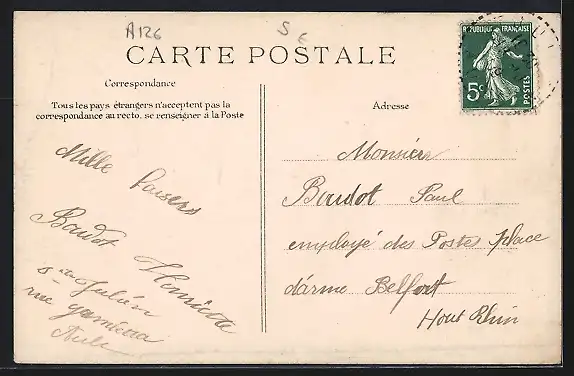 A126
S
6
CARTE POSTALE
Correspondance
Tous les pays étrangers n'acceptent pas la
correspondance au recto, se renseigner à la Poste
Mille baisers
Baudot Henriette
rue gambetta
Adresse
Monsieur
Baudot Paul
employé des Postes place
d'arme Belfort
Haut Rhin
REPUBLIQUE FRANÇAISE
5c
POSTES